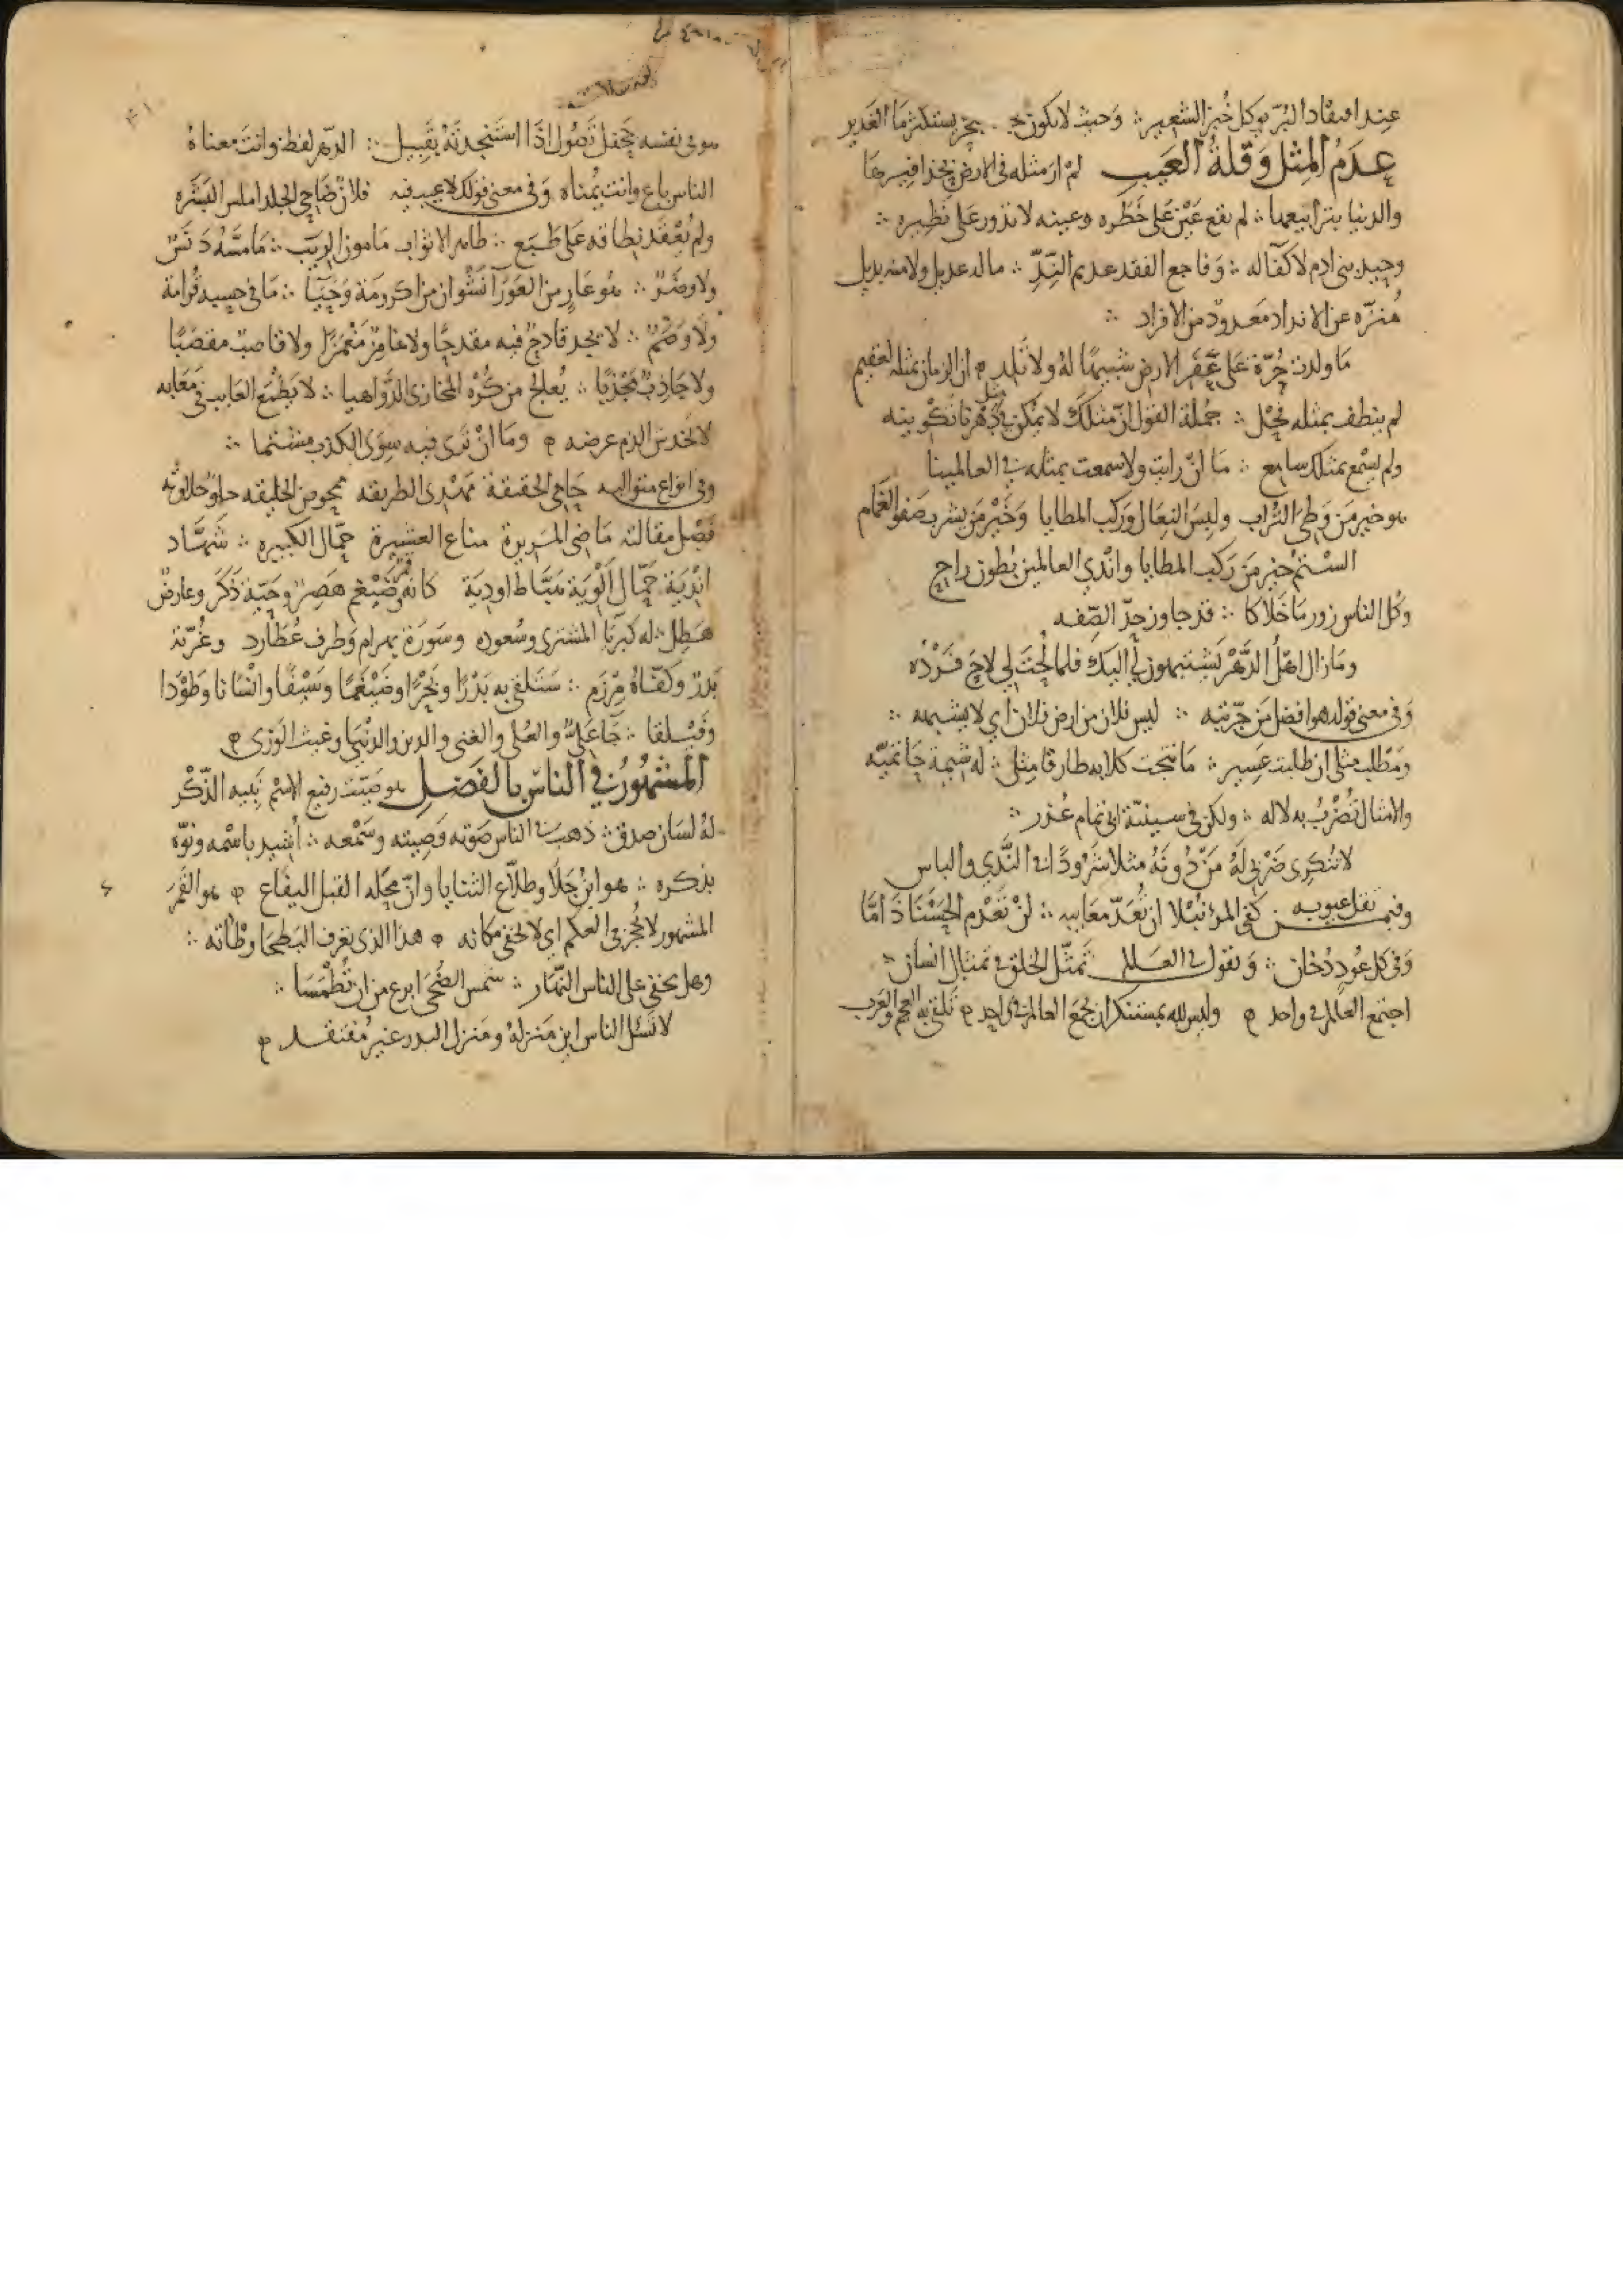 عند افتقاد البُرّ يوكل خُبز الشعير ∴ وَحيث لا يكون بحر يستكثر مَا الغَدير
عدَمُ المِثل وَقلة العَيب لم ار مثله في الارض بحذافيرهَا
والدنيا بترابيعها ∴ لم تقع عَيْن عَلى خَطَره وعينه لا تدور عَلى نَظيره ∴
وحيد بني ادم لا كفآ له ∴ وَفاجع الفقد عديم النِدِّ ∴ ما له عديل ولا منه بديل
مُنزّه عن الانداد مَعدودٌ من الافراد ∴
مَا ولدت حُرّة عَلى عَفَر الارض شبيهًا لهُ ولا تَلد ۞ ان الزمان بمثله لعقيم
جُملة القول انّ مثلكَ لا يُمكن في مثل دَهْرنا تَكْوينه
ولم يسْمع بمثلك سامع ∴ مَا انْ رايت ولا سمعت بمثله في العالمينا
هو خير مَن وَطِئَ التُراب ولبِسَ النِعَال وَركب المطايا وَخَيْر مَن يشرب صَفو الغَمام
السْتمُ خير مَن رَكب المطايا وانْدي العالمين بُطون راح
وكل الناس زور مَا خَلاكا ∴ قد جاوز حدّ الصِّفه
ومَا زال اهْلُ الدَّهْر يَشتبهون لي اليكَ فلما لُحْتَ لي لاحَ فَرْدُه
وَفي معنى قوله هوا افضل مَن جرّبته ∴ ليس فلان من ارض فلان اي لا يشبهه ∴
ومَطْلب مثلي ان طلبت عَسير ∴ مَا نبحت كلابه طارقا مثلي ∴ له شيمة حَاتميّه
والامثال تُضْرَبُ به لا له ∴
لا تُنكري ضَرْبي لَهُ مَنْ دُونَهُ مثلا شَرُودًا في النَّدي والباس
وفيمن تقل عيوبه كفى المرْ نُبْلا ان تُعدّ مَعَايبه ∴ لنْ تَعْدَم الحَسْنَا ذَامَّا
وَفي كل عُودٍ دُخان ∴ وَنقول في العَالم تمثّل الخلق في تمثال انسان ∴
اجتمع العالم في واحد ۞ وليس لله بمستنكر ان يجمَع العالم في واحد ۞ تَلْقى به العجم والعَرب
هو في نفسه جَحفل تَصُول اذَا استَنجدتَهُ بقَبيل ∴ الدّهر لفظ وانتَ معناهُ
الناس باع وانت يُمناه وَفي معنى قولك لا عيب فيه فلانٌ ضَاحي الجلد املس البَشَره
ولم يُعْقَد نِطاقه عَلى طَبَع ∴ طاهر الاثواب مَامون الريَب ∴ مَا مَسَّهُ دَنَسٌ
ولا وضَرٌ ∴ هو عَارٍ من العَورآ نَشْوان من اكرومَة وَحَيَا ∴ مَا في حسبه قُرامة
ولا وَصْمٌ ∴ لا يجد قادحٌ فيه مقدحًا ولا غامِزٌ مَغْمَزًا ولا قاصبٌ مقصَبًا
ولا جَاذِبٌ مجْذَبًا ∴ لا يَطْمَع العَايب في مَعَابه
لا يخدش الذم عرضه ۞ ومَا انْ تَرى فيه سِوَى الكذب مشتما ∴
وفي انواع متواليه حَامي الحقيقة مَهْدى الطريقه محوض الخليقه
فَصْل مقالته مَاضي المَريرة مناع العشيرة حمّال الكبيره ∴ شَهَّاد
انْديَة حَمّال اَلْوِيَة هَبَّاط اوديَة كانه ضَيْغم هَصِرٌ وحَيّة ذَكَرٌ وعارضٌ
هَطِل ∴ له كبريَا المشتري وسُعوده وسَورَة بهرام وَطَرف عُطَارد وغُرّة
بَدْرٌ وكَفّاهُ مِرْزَم ∴ سَتَلْقى به بَدْرًا وبَحْرًا وضَيْغَمًا وَسَيْفًا وانْسَانا وَطَوْدا
وَفَيْلَقا ∴ والعُلى والغنى والدين والدُنْيَا وغيث الوَرى ۞
المَشهُورُ في الناس بالفَضل هو صَيّت رفيع الاسْم نَبيه الذّكْر
لهُ لسَان صدق ∴ ذهب في الناس صَوْته وَصِيته وسَمْعه ∴ اُشيد باسْمه ونَوّه
بذكره ∴ هو ابن جَلَا وطلّاع الثنايا وانّ مَحَله القبل اليَفَاع ۞ هو القَمَر
المشهور لا يُحجز في العكم اي لا يخفى مكانه ۞ هذا الذي تعرف البَطحَا وطْاته ∴
وهل يخفى على الناس النّهَار ∴ شمس الضُحَى ابرع من ان تُطْمَسَا ∴
لا تَسْئل الناس اين مَنزلهُ ومَنزل البدر غير مُفتقد ۞